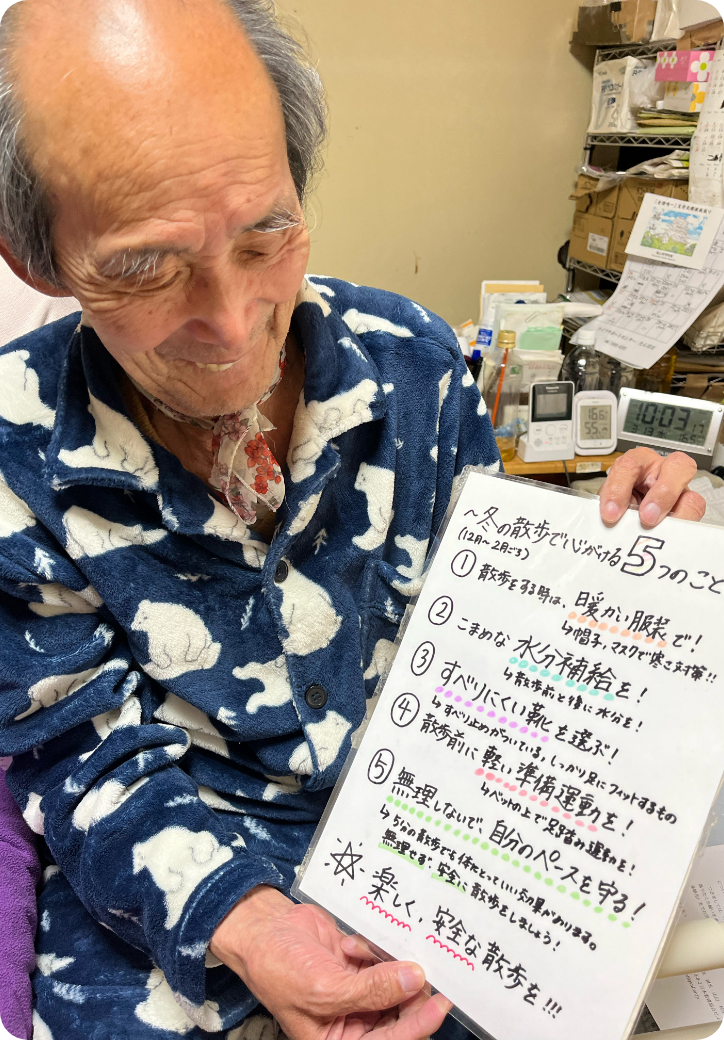 10:03
16.6
55
～冬の散歩で心がける5つのこと
(12月～2月ごろ)
① 散歩をする時は、暖かい服装で!
↳帽子、マスクで寒さ対策!!
② こまめな 水分補給を!
↳散歩前と後に水分を!
③ すべりにくい靴を選ぶ!
↳すべり止めがついている、しっかり足にフィットするもの
④ 散歩前に軽い準備運動を!
↳ベットの上で足踏み運動を!
⑤ 無理しないで、自分のペースを守る!
↳5分の散歩でも体にとっていい効果があります。
無理せず安全に散歩をしましょう!
☆ 楽しく、安全な散歩を!!!